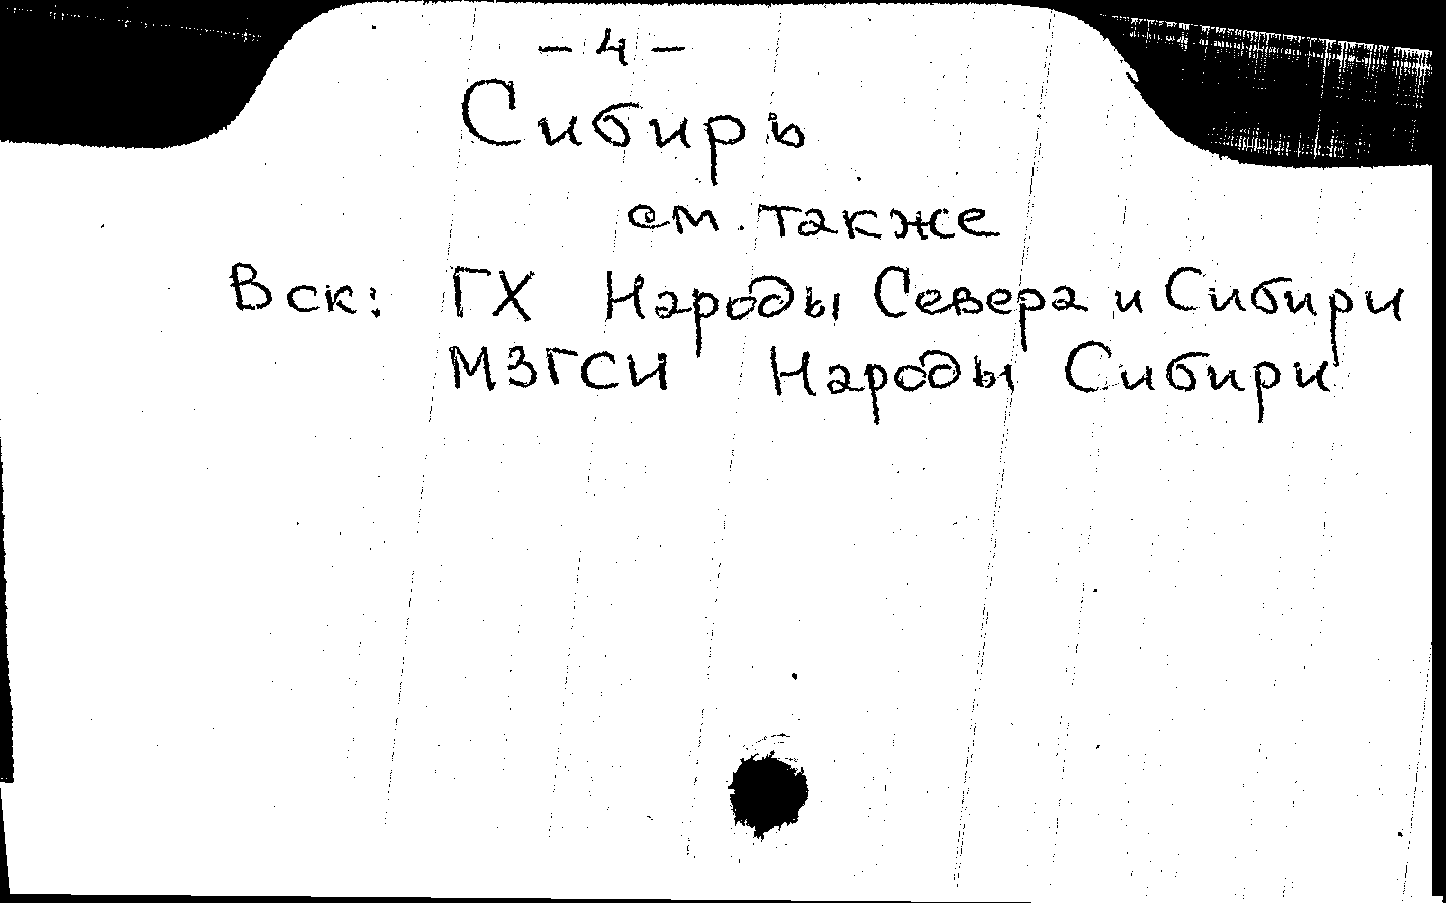 - 4 -
Сибирь
см. также
Вск: ГХ Народы Севера и Сибири
МЗГСИ Народы Сибири